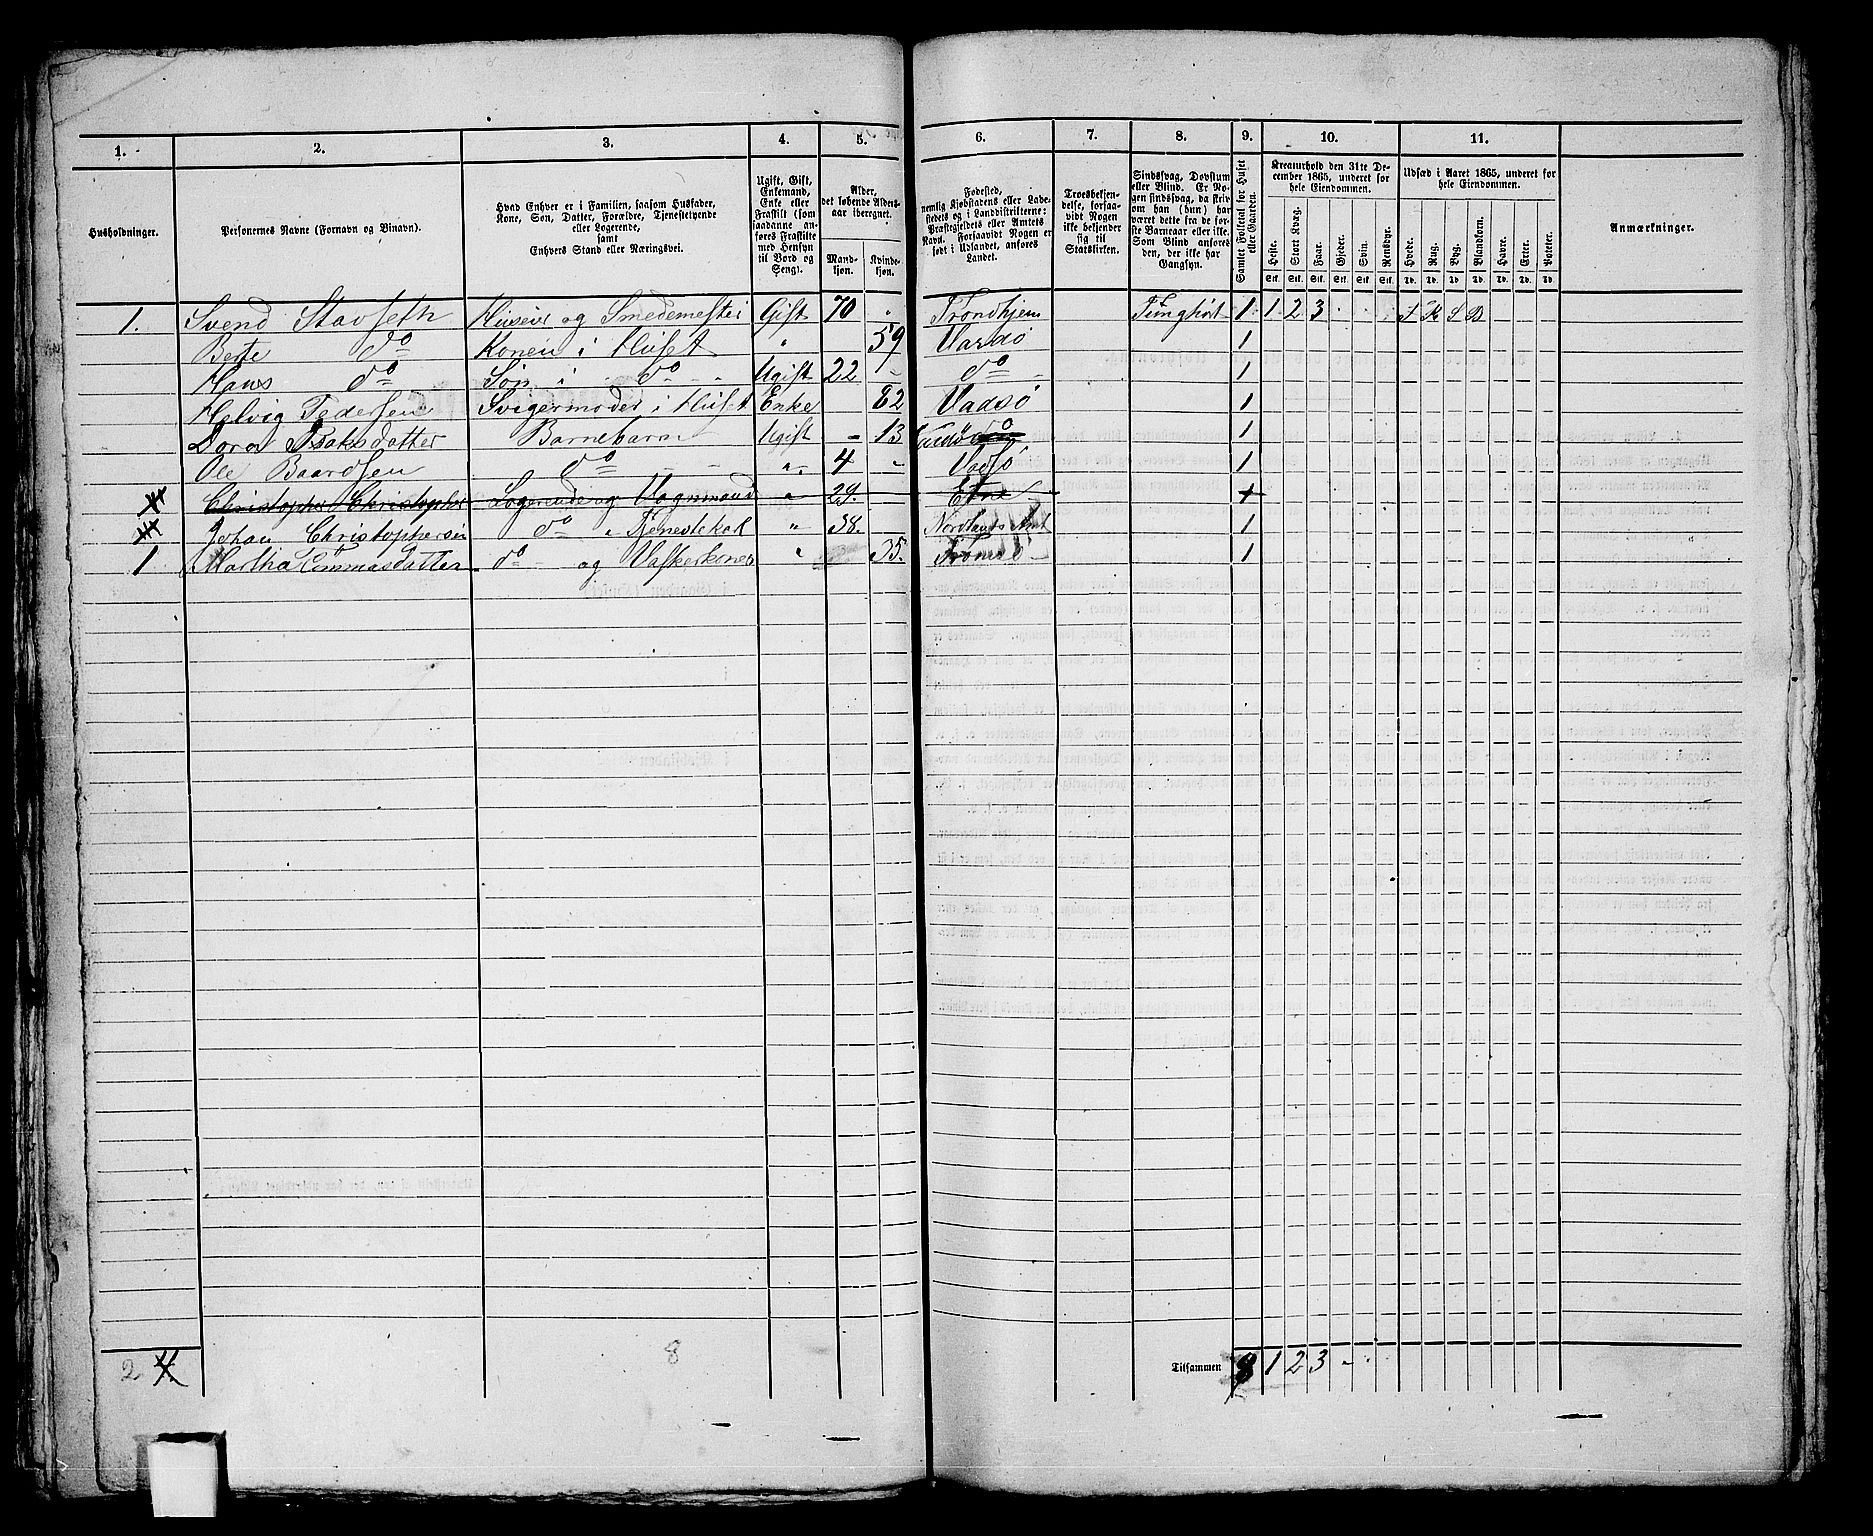 1. 2. 3. 4. 5. 6. 7. 8. 9. 10. 11.
Husholdninger.
Personernes Navne (Fornavn og Binavn).
Hvad Enhver er i Familien, saasom Husfader,
Kone, Søn, Datter, Forældre, Tjenestetyende
eller Logerende,
samt
Enhvers Stand eller Næringsvei.
Ugift, Gift,
Enkemand,
Enke eller
Fraskilt (som
saadanne an-
føres Fraskilte
med Hensyn
til Bord og
Seng).
Alder,
det løbende Alders-
aar iberegnet.
Mand-
kjøn.
Kvinde-
kjøn.
Fødested,
nemlig Kjøbstadens eller Lade-
stedets og i Landdistrikterne:
Præstegjeldets eller Amtets
Navn. Forsaavidt Nogen er
født i Udlandet, anføres
Landet.
Troesbekjen-
delse, forsaa-
vidt Nogen
ikke bekjender
sig til
Statskirken.
Sindssvag, Døvstum
eller Blind. Er No-
gen sindssvag, da skriv
om han (hun) har
været dette fra de før-
ste Barneaar eller ikke.
Som Blind anføres
den, der ikke har
Gangsyn.
Samlet Folketal for Huset
eller Gaarden.
Kreaturhold den 31te De-
cember 1865, underet for
hele Eiendommen.
Heste. Stort Kvæg. Faar. Gjeder. Svin. Rensdyr.
Stk. Stk. Stk. Stk. Stk. Stk.
Udsæd i Aaret 1865, underet for
hele Eiendommen.
Hvede. Rug. Byg. Blandkorn. Havre. Erter. Poteter.
Td. Td. Td. Td. Td. Td. Td.
Anmærkninger.
1. Svend Stavseth Huseier og Smedemester Gift 70 " Trondhjem Tunghørt 1 1 2 3
Berte do Konen i Huset " 59 Vardø 1
Hans do Søn i do Ugift 22 - do 1
Helvig Pedersen Svigermoder i Huset Enke 82 Vadsø 1
Dora Isaksdatter Barnebarn Ugift - 13 do 1
Ole Baardsen do " 4 - Vadsø 1
Christopher Christopher Logerende og Vognmand " 29. Etne 1
Johan Christophersen do " Tjenestekar " 38. Nordlands Amt 1
1 Martha Emmasdatter do og Vaskerkone " 35. Tromsø 1
2 4 8 Tilsammen 8 1 2 3